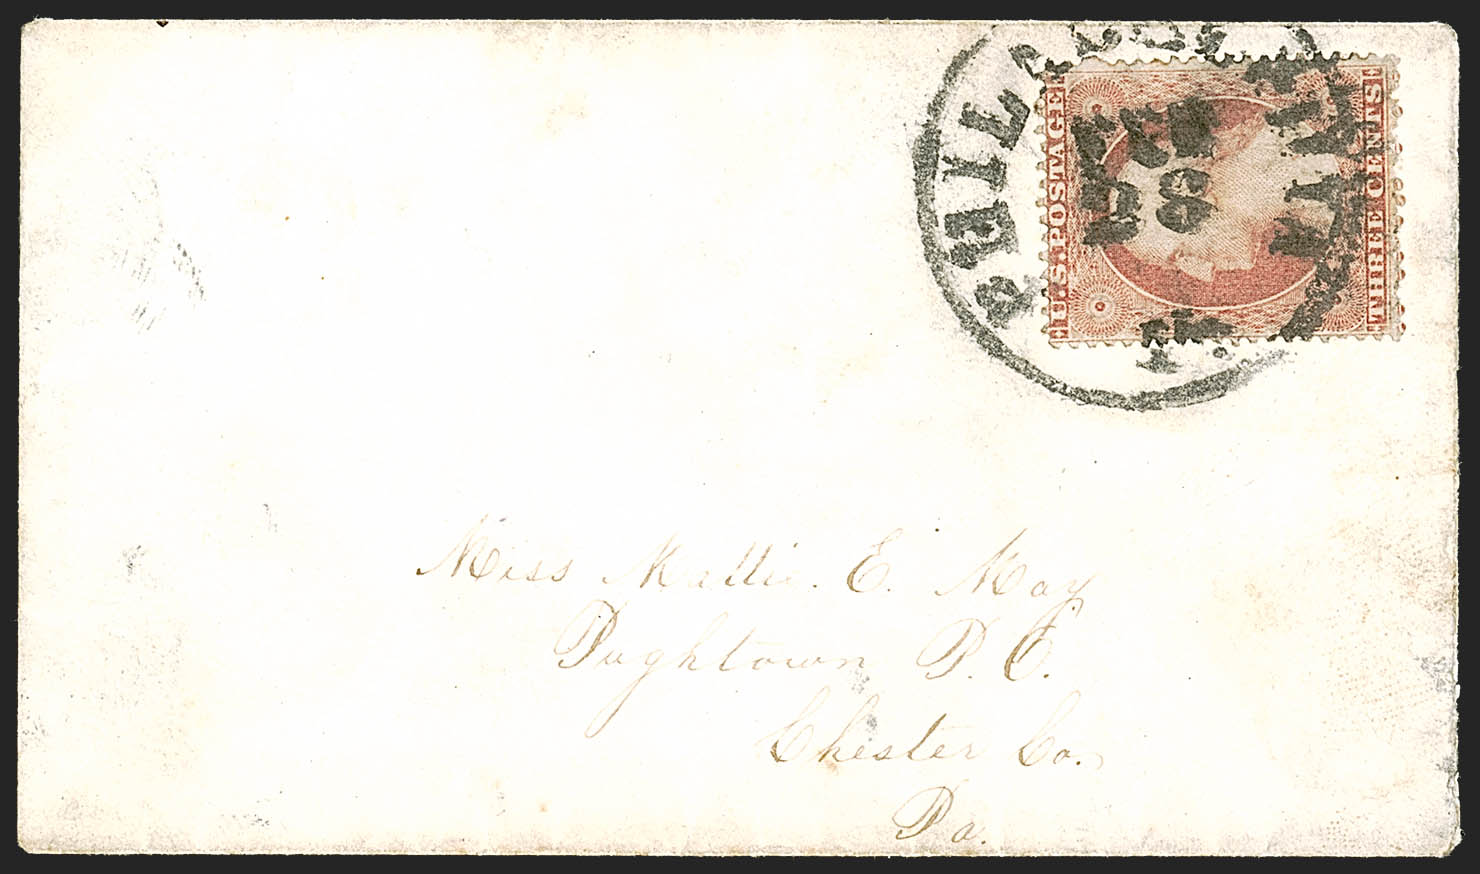 PHILADE
U.S. POSTAGE
THREE CENTS
Miss Mattie. E. May
Pughtown P. O.
Chester Co.
Pa.